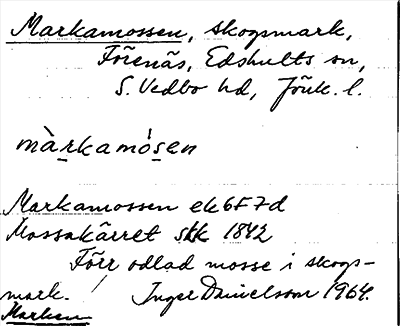 Markamossen, skogsmark,
Förenäs, Edshults sn,
S. Vedbo hd, Jönk. l.
màrkamósen
Markamossen ek 6F7d
Mossakärret skk 1842
Förr odlad mosse i skogs-
mark. Inger Danielsson 1964.
Marken